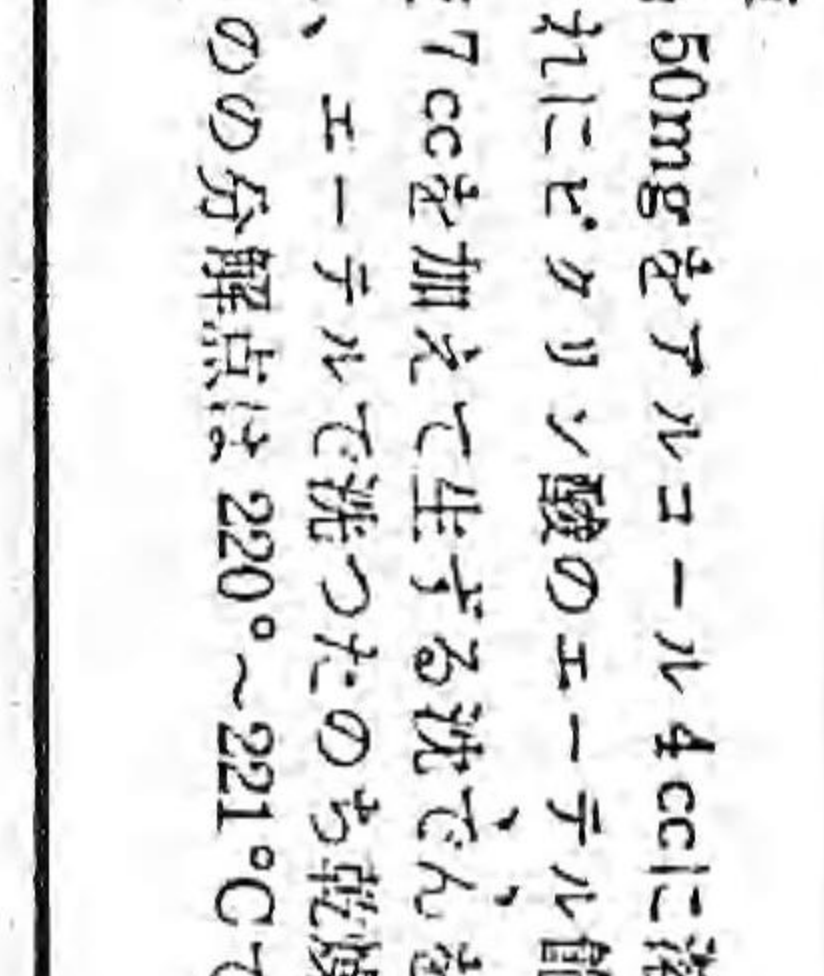 50mgをアルコール4ccに溶
れにピクリン酸のエーテル飽
7ccを加えて生ずる沈でんを
、エーテルで洗つたのち乾燥
のの分解点は220°~221°Cで